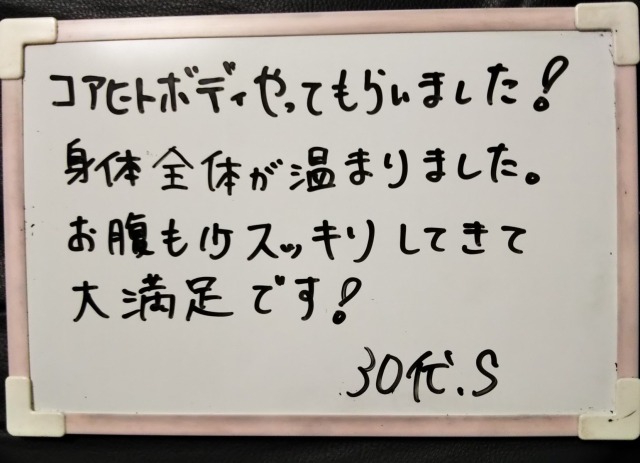 コアヒトボディやってもらいました!
身体全体が温まりました。
お腹も スッキリしてきて
大満足です!
30代.S